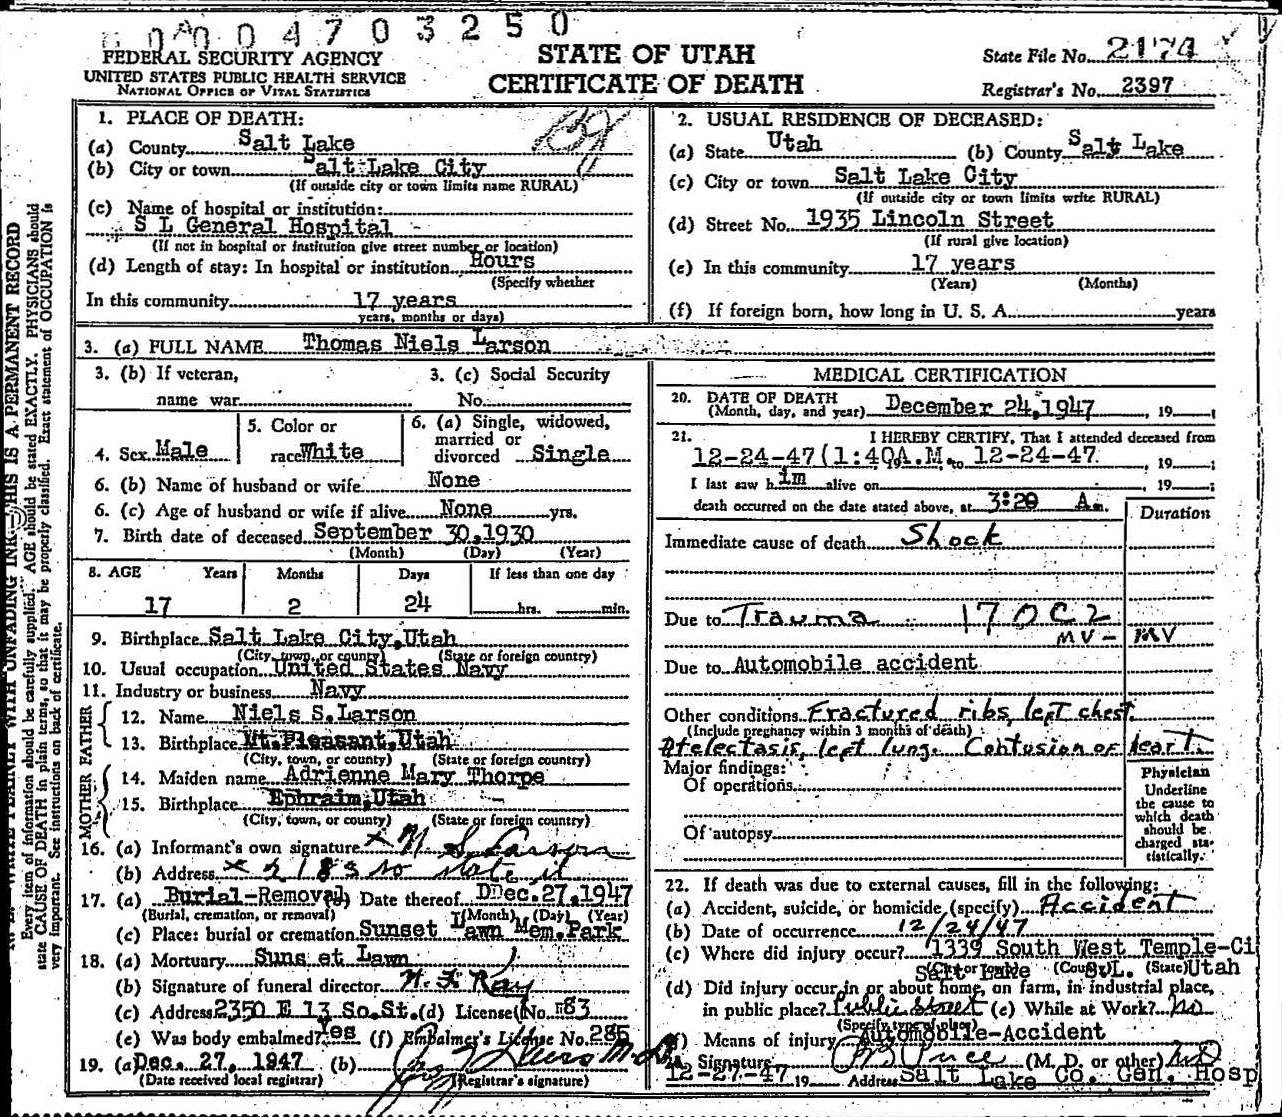 0 0 0 4 7 0 3 2 5 0
FEDERAL SECURITY AGENCY
UNITED STATES PUBLIC HEALTH SERVICE
NATIONAL OFFICE OF VITAL STATISTICS
STATE OF UTAH
CERTIFICATE OF DEATH
State File No. 2174
Registrar's No. 2397
WRITE PLAINLY WITH UNFADING INK—THIS IS A PERMANENT RECORD
Every item of information should be carefully supplied. AGE should be stated EXACTLY. PHYSICIANS should
state CAUSE OF DEATH in plain terms, so that it may be properly classified. Exact statement of OCCUPATION is
very important. See instructions on back of certificate.
1. PLACE OF DEATH:
(a) County Salt Lake
(b) City or town Salt Lake City
(If outside city or town limits name RURAL)
(c) Name of hospital or institution:
S L General Hospital
(If not in hospital or institution give street number or location)
(d) Length of stay: In hospital or institution Hours
(Specify whether
In this community 17 years
years, months or days)
2. USUAL RESIDENCE OF DECEASED:
(a) State Utah (b) County Salt Lake
(c) City or town Salt Lake City
(If outside city or town limits write RURAL)
(d) Street No. 1935 Lincoln Street
(If rural give location)
(e) In this community 17 years
(Years) (Months)
(f) If foreign born, how long in U. S. A. years
3. (a) FULL NAME Thomas Niels Larson
3. (b) If veteran, 3. (c) Social Security
name war No.
4. Sex Male
5. Color or
race White
6. (a) Single, widowed,
married or
divorced Single
6. (b) Name of husband or wife None
6. (c) Age of husband or wife if alive None yrs.
7. Birth date of deceased September 30,1930
(Month) (Day) (Year)
8. AGE Years Months Days If less than one day
17 2 24 hrs. min.
9. Birthplace Salt Lake City,Utah
(City, town, or county) (State or foreign country)
10. Usual occupation United States Navy
11. Industry or business Navy
FATHER
12. Name Niels S.Larson
13. Birthplace Mt.Pleasant,Utah
(City, town, or county) (State or foreign country)
MOTHER
14. Maiden name Adrienne Mary Thorpe
15. Birthplace Ephraim,Utah
(City, town, or county) (State or foreign country)
16. (a) Informant's own signature x N S Larson
(b) Address x 2183 So State St
17. (a) Burial-Removal (b) Date thereof Dec.27,1947
(Burial, cremation, or removal) (Month) (Day) (Year)
(c) Place: burial or cremation Sunset Lawn Mem.Park
18. (a) Mortuary Suns et Lawn
(b) Signature of funeral director
(c) Address 2350 E 13 So.St. (d) License No 583
(e) Was body embalmed? Yes (f) Embalmer's License No. 285
19. (a) Dec. 27, 1947 (b)
(Date received local registrar) (Registrar's signature)
MEDICAL CERTIFICATION
20. DATE OF DEATH
(Month, day, and year) December 24,1947 , 19 ;
21. I HEREBY CERTIFY, That I attended deceased from
12-24-47(1:40A.M. to 12-24-47 , 19 ;
I last saw him alive on , 19 ;
death occurred on the date stated above, at 3:20 A m.
Duration
Immediate cause of death Shock
Due to Trauma 170C2
MV - MV
Due to Automobile accident
Other conditions Fractured ribs, left chest.
(Include pregnancy within 3 months of death)
Atelectasis, left lung. Contusion of heart.
Major findings:
Of operations
Of autopsy
Physician
Underline
the cause to
which death
should be
charged sta-
tistically.
22. If death was due to external causes, fill in the following:
(a) Accident, suicide, or homicide (specify) Accident
(b) Date of occurrence 12/24/47
(c) Where did injury occur? 1339 South West Temple-Ci
Salt Lake S.L. Utah
(City or town) (County) (State)
(d) Did injury occur in or about home, on farm, in industrial place,
in public place? Public Street (e) While at Work? No
(Specify type of place)
(f) Means of injury Automobile-Accident
Signature Price (M. D. or other) MD
12-27-47 19 Address Salt Lake Co. Gen. Hosp